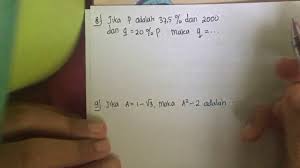 8) Jika P adalah 37,5 % dari 2000
dan q = 20 % P maka q = ...
9) Jika A = 1 - √3, maka A² - 2 adalah